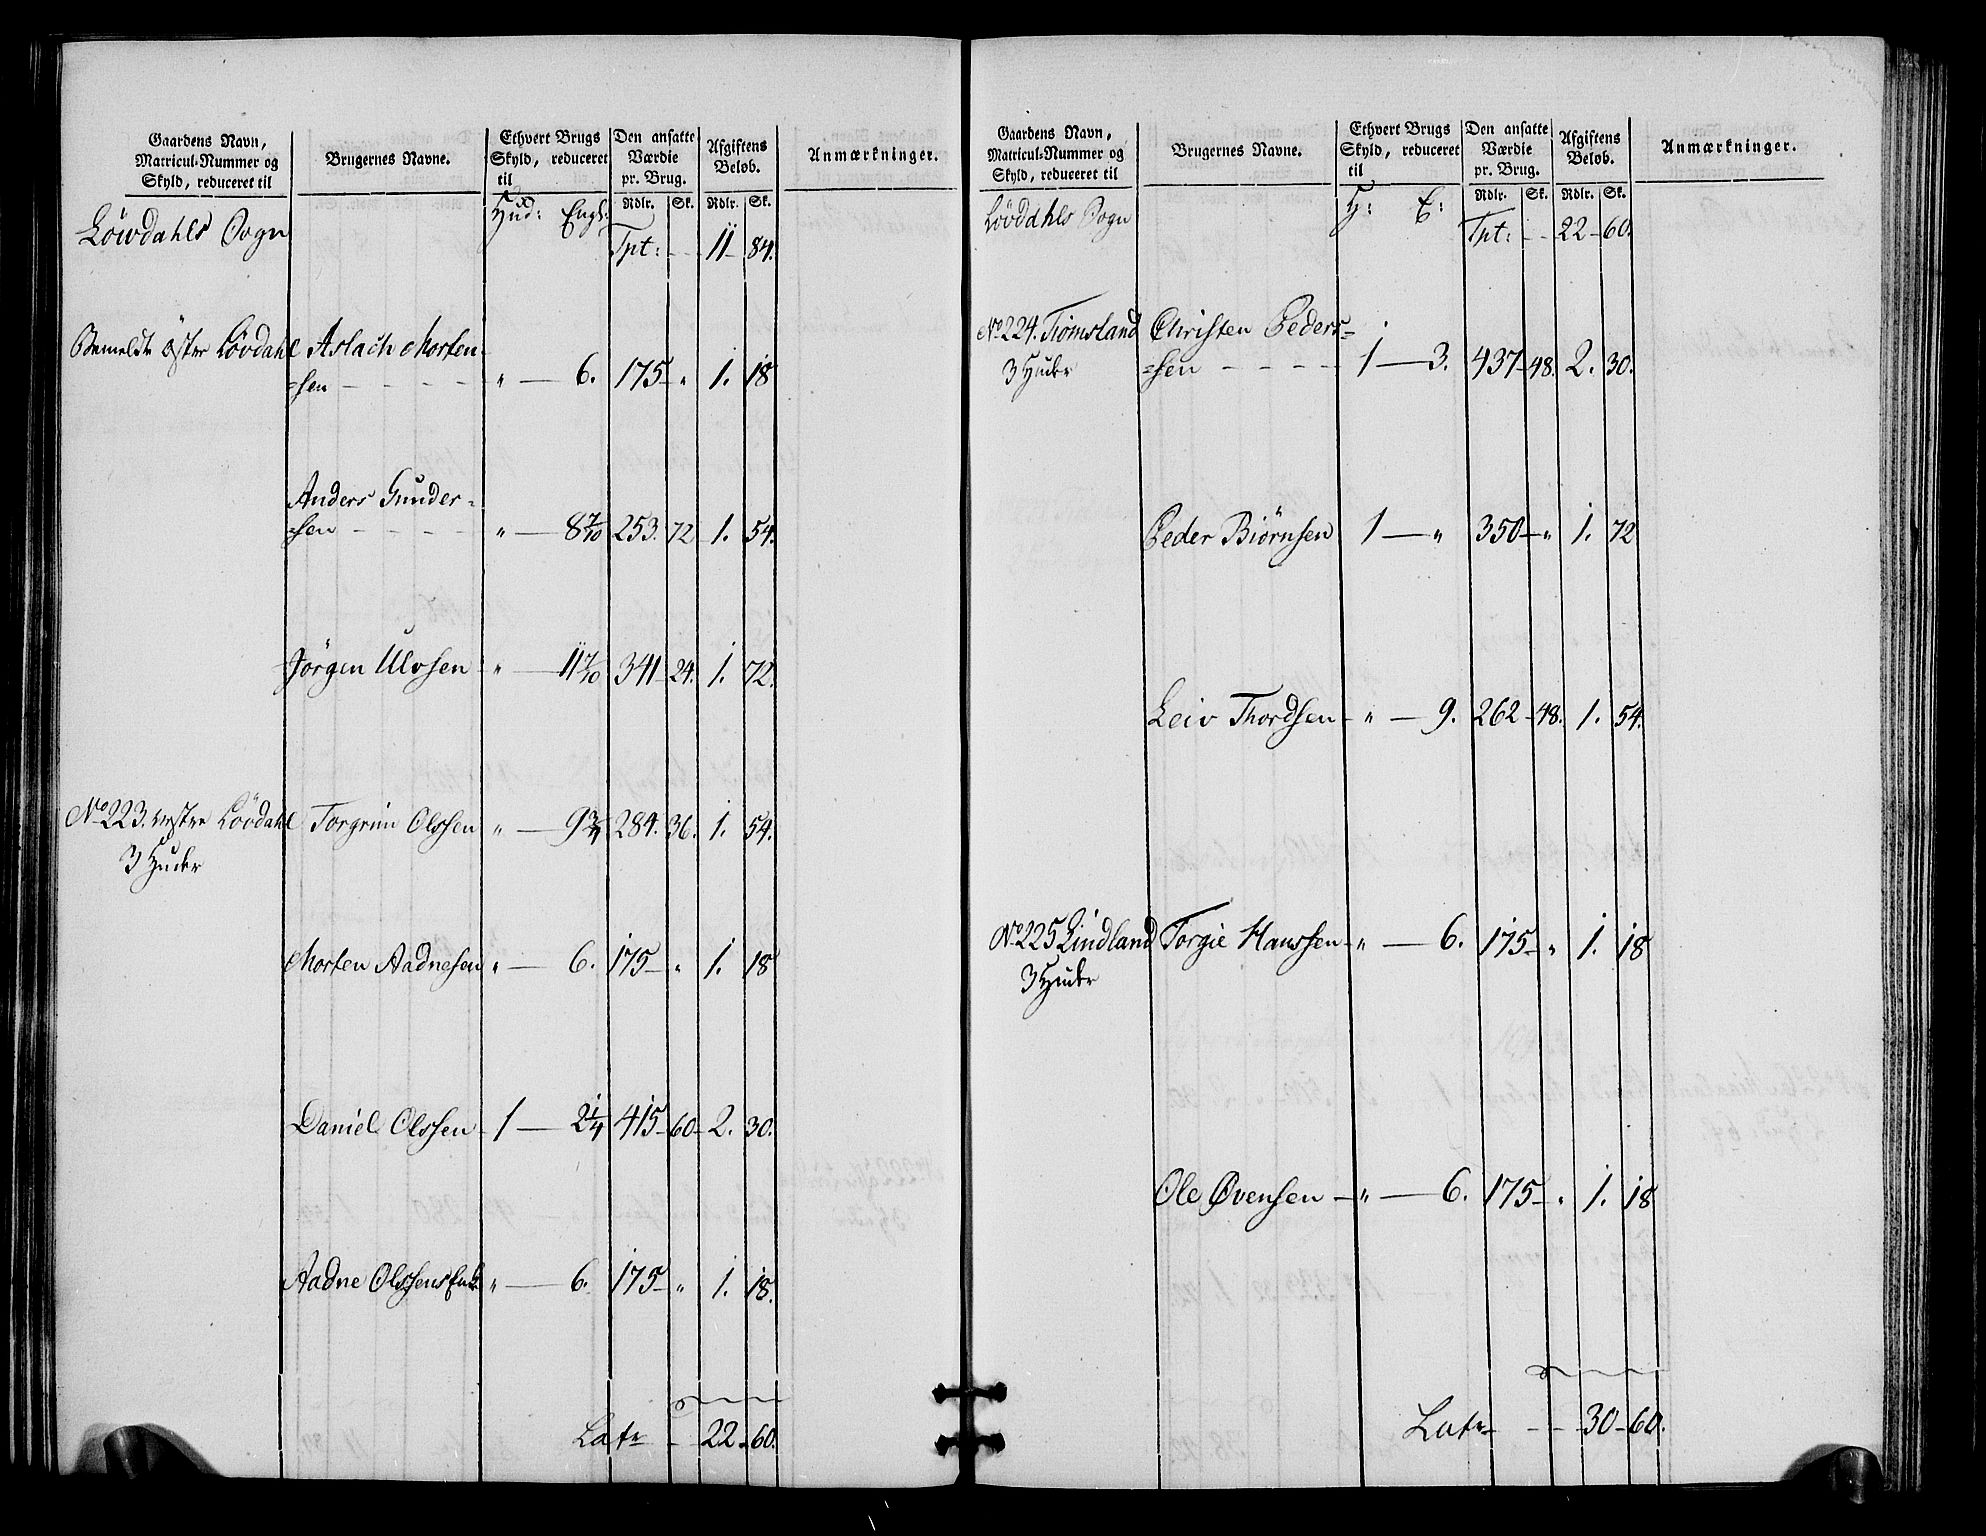 Gaardens Navn, Matricul-Nummer og Skyld, reduceret til | Brugernes Navne. | Ethvert Brugs Skyld, reduceret til | Den ansatte Værdie pr. Brug. | Afgiftens Beløb. | Anmærkninger.
Hud: Engl: Rdlr. Sk. Rdlr. Sk.
Lövdahls Sogn Tpt: - - 11 - 84.
Bemeldte Öster Lövdahl Aslach Morten-
=sen - - - - - " — 6. 175 - " 1. 18
Anders Gunder=
=sen - - - - " — 8 7/10 253. 72 1. 54.
Jörgen Ulvsen " — 11 7/10 341 - 24. 1. 72.
No 223. vestre Lövdahl Torgrim Olssen " — 9 3/4 284. 36. 1. 54.
3 Huder
Morten Aadnesen " — 6. 175 - " 1. 18
Daniel Olssen 1 — 2 1/4 415 - 60 - 2. 30.
Aadne Olssens Enke " — 6. 175 - " 1. 18.
Latr - - 22 - 60.
Gaardens Navn, Matricul-Nummer og Skyld, reduceret til | Brugernes Navne. | Ethvert Brugs Skyld, reduceret til | Den ansatte Værdie pr. Brug. | Afgiftens Beløb. | Anmærkninger.
H: E: Rdlr. Sk. Rdlr. Sk.
Lövdahls Sogn Tpt: - - 22 - 60.
No 224. Tiomsland Christen Peders=
3 Huder =sen - - - - 1 — 3. 437 - 48. 2. 30.
Peder Biörnsen 1 — " 350 - " 1. 72
Leiv Thordsen - " — 9. 262 - 48. 1. 54.
No 225 Lindland Torgie Hanssen - " — 6. 175 - " 1. 18
3 Huder
Ole Øvensen - " — 6. 175 - " 1. 18
Latr - - 30 - 60.